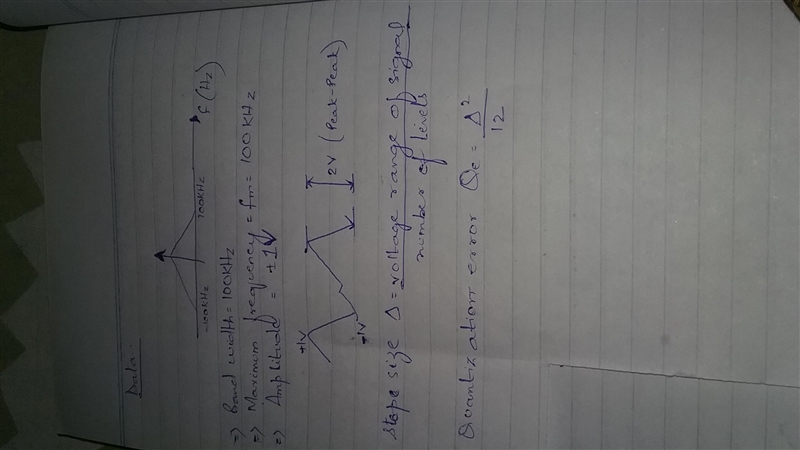 Data:-
-100KHz 100KHz f (Hz)
=> Band width = 100KHz
=> Maximum frequency = fm = 100 KHz
=> Amplitude = ±1V
+1V
-1V
2V (Peak-Peak)
Stepe size Δ = voltage range of signal
number of levels
Quantization error Qe = Δ²
12